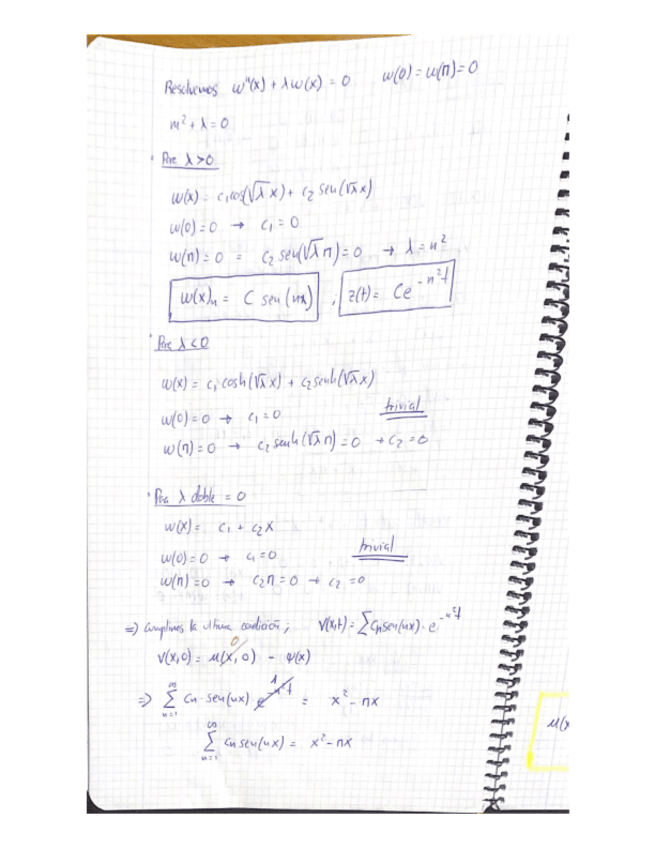 Resolvemos w''(x) + λw(x) = 0 w(0) = w(π) = 0
m² + λ = 0
· Para λ>0
w(x) = c₁cos(√λ x) + c₂ sen(√λ x)
w(0) = 0 → c₁ = 0
w(π) = 0 = c₂ sen(√λ π) = 0 → λ = n²
w(x)ₙ = C sen(nx) , z(t) = Ce^(-n²t)
· Para λ<0
w(x) = c₁ cosh(√λ x) + c₂ senh(√λ x)
w(0) = 0 → c₁ = 0 trivial
w(π) = 0 → c₂ senh(√λ π) = 0 → c₂ = 0
· Para λ doble = 0
w(x) = c₁ + c₂x
w(0) = 0 → c₁ = 0 trivial
w(π) = 0 → c₂π = 0 → c₂ = 0
⇒ Cumplimos la última condición; V(x,t) = ∑ cₙ sen(nx) · e^(-n²t)
0
V(x,0) = u(x,0) - ψ(x)
1
⇒ ∑_(n=1)^∞ cₙ · sen(nx) e^(-n²t) = x² - πx
∑_(n=1)^∞ cₙ sen(nx) = x² - πx
u(x